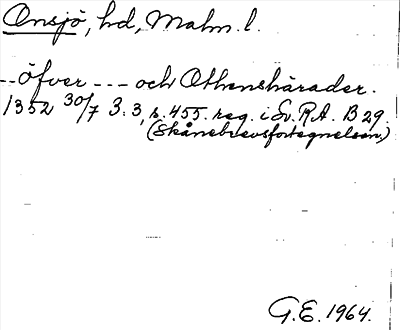 Onsjö, hd, Malm. l.
-- öfver --- och Othenshärader.
1352 30/7 3.3, s. 455. reg. i Sv. R.A. B 29.
(Skånebrevsfortegnelsen)
G.E. 1964.